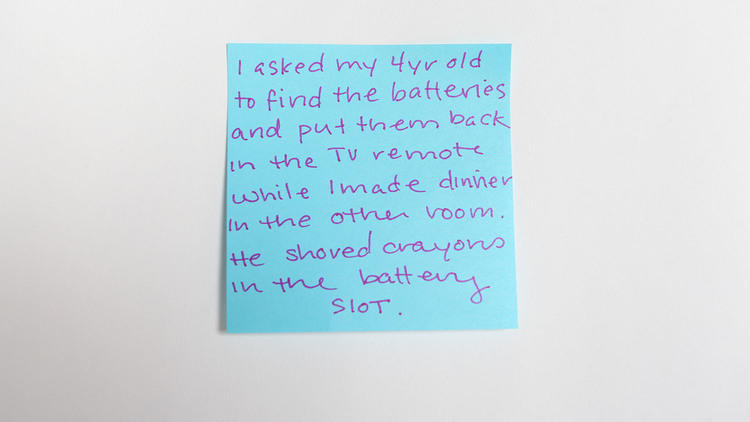 I asked my 4yr old
to find the batteries
and put them back
in the TV remote
while I made dinner
in the other room.
He shoved crayons
in the battery
SLOT.